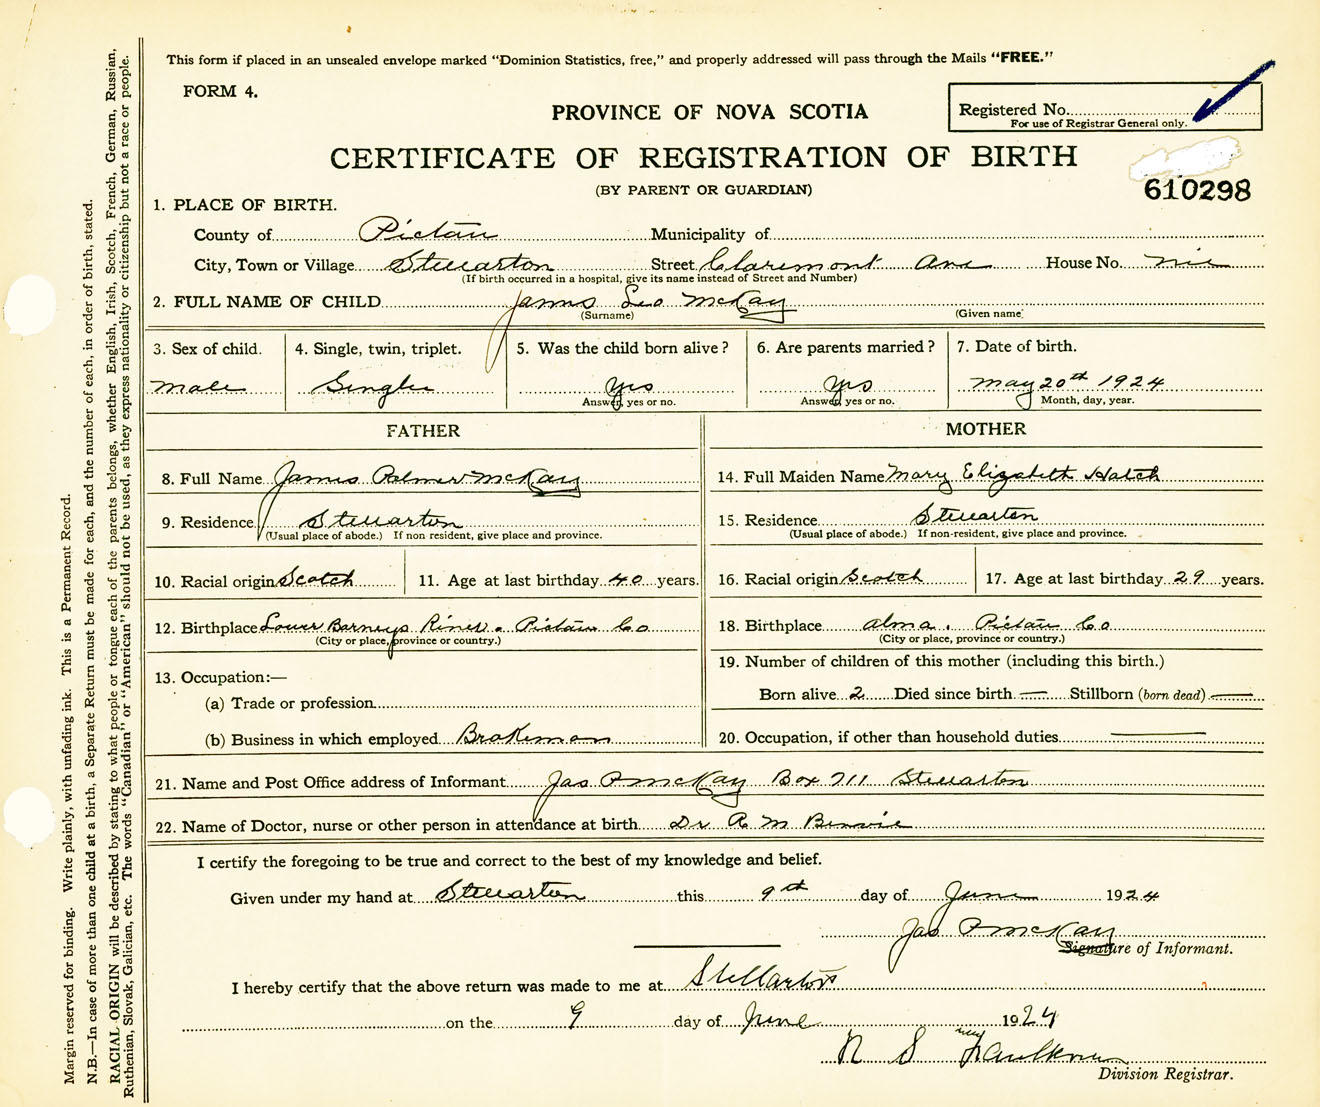 This form if placed in an unsealed envelope marked “Dominion Statistics, free,” and properly addressed will pass through the Mails “FREE.”
FORM 4.
Registered No.
For use of Registrar General only.
PROVINCE OF NOVA SCOTIA
CERTIFICATE OF REGISTRATION OF BIRTH
(BY PARENT OR GUARDIAN)
610298
1. PLACE OF BIRTH.
County of Pictou Municipality of
City, Town or Village Stellarton Street Claremont Ave House No. nil
(If birth occurred in a hospital, give its name instead of Street and Number)
2. FULL NAME OF CHILD James Leo McKay
(Surname) (Given name)
3. Sex of child. 4. Single, twin, triplet. 5. Was the child born alive? 6. Are parents married? 7. Date of birth.
male Single yes yes May 20th 1924
Answer, yes or no. Answer, yes or no. Month, day, year.
FATHER MOTHER
8. Full Name James Palmer McKay 14. Full Maiden Name Mary Elizabeth Hatch
9. Residence Stellarton 15. Residence Stellarton
(Usual place of abode.) If non resident, give place and province. (Usual place of abode.) If non-resident, give place and province.
10. Racial origin Scotch 11. Age at last birthday 40 years. 16. Racial origin Scotch 17. Age at last birthday 29 years.
12. Birthplace Lower Barneys River. Pictou Co 18. Birthplace Alma. Pictou Co
(City or place, province or country.) (City or place, province or country.)
13. Occupation:— 19. Number of children of this mother (including this birth.)
(a) Trade or profession. Born alive 2 Died since birth — Stillborn (born dead) —
(b) Business in which employed Brakeman 20. Occupation, if other than household duties —
21. Name and Post Office address of Informant Jas P McKay Box 711 Stellarton
22. Name of Doctor, nurse or other person in attendance at birth Dr R M Benvie
I certify the foregoing to be true and correct to the best of my knowledge and belief.
Given under my hand at Stellarton this 9th day of June 1924
Jas P McKay
Signature of Informant.
I hereby certify that the above return was made to me at Stellarton
on the 9 day of June 1924
N S Faulkner
Division Registrar.
Margin reserved for binding. Write plainly, with unfading ink. This is a Permanent Record.
N.B.—In case of more than one child at a birth, a Separate Return must be made for each, and the number of each, in order of birth, stated.
RACIAL ORIGIN will be described by stating to what people or tongue each of the parents belongs, whether English, Irish, Scotch, French, German, Russian,
Ruthenian, Slovak, Galician, etc. The words “Canadian” or “American” should not be used, as they express nationality or citizenship but not a race or people.